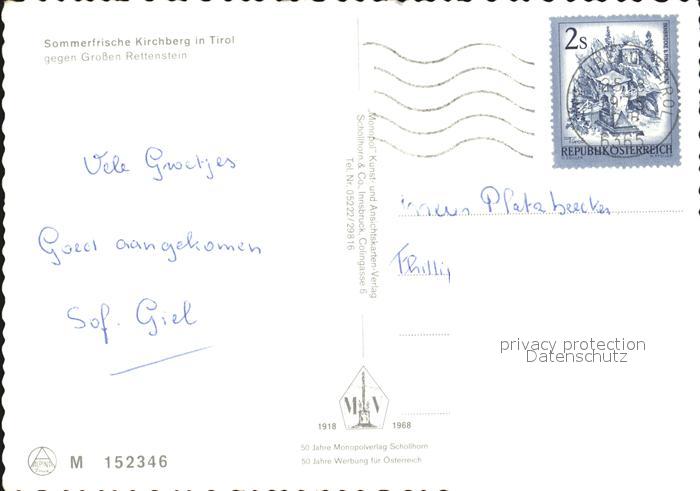 Sommerfrische Kirchberg in Tirol
gegen Großen Rettenstein
Vele Groetjes
Goed aangekomen
Sof. Giel
"Monopol" Kunst- und Ansichtskarten-Verlag
Schöllhorn & Co., Innsbruck, Colingasse 6
Tel. Nr. 05222/29816
2s
REPUBLIK ÖSTERREICH
TIROL
6365
Platzbecker
privacy protection
Datenschutz
M V
1918 1968
50 Jahre Monopolverlag Schöllhorn
50 Jahre Werbung für Österreich
M 152346